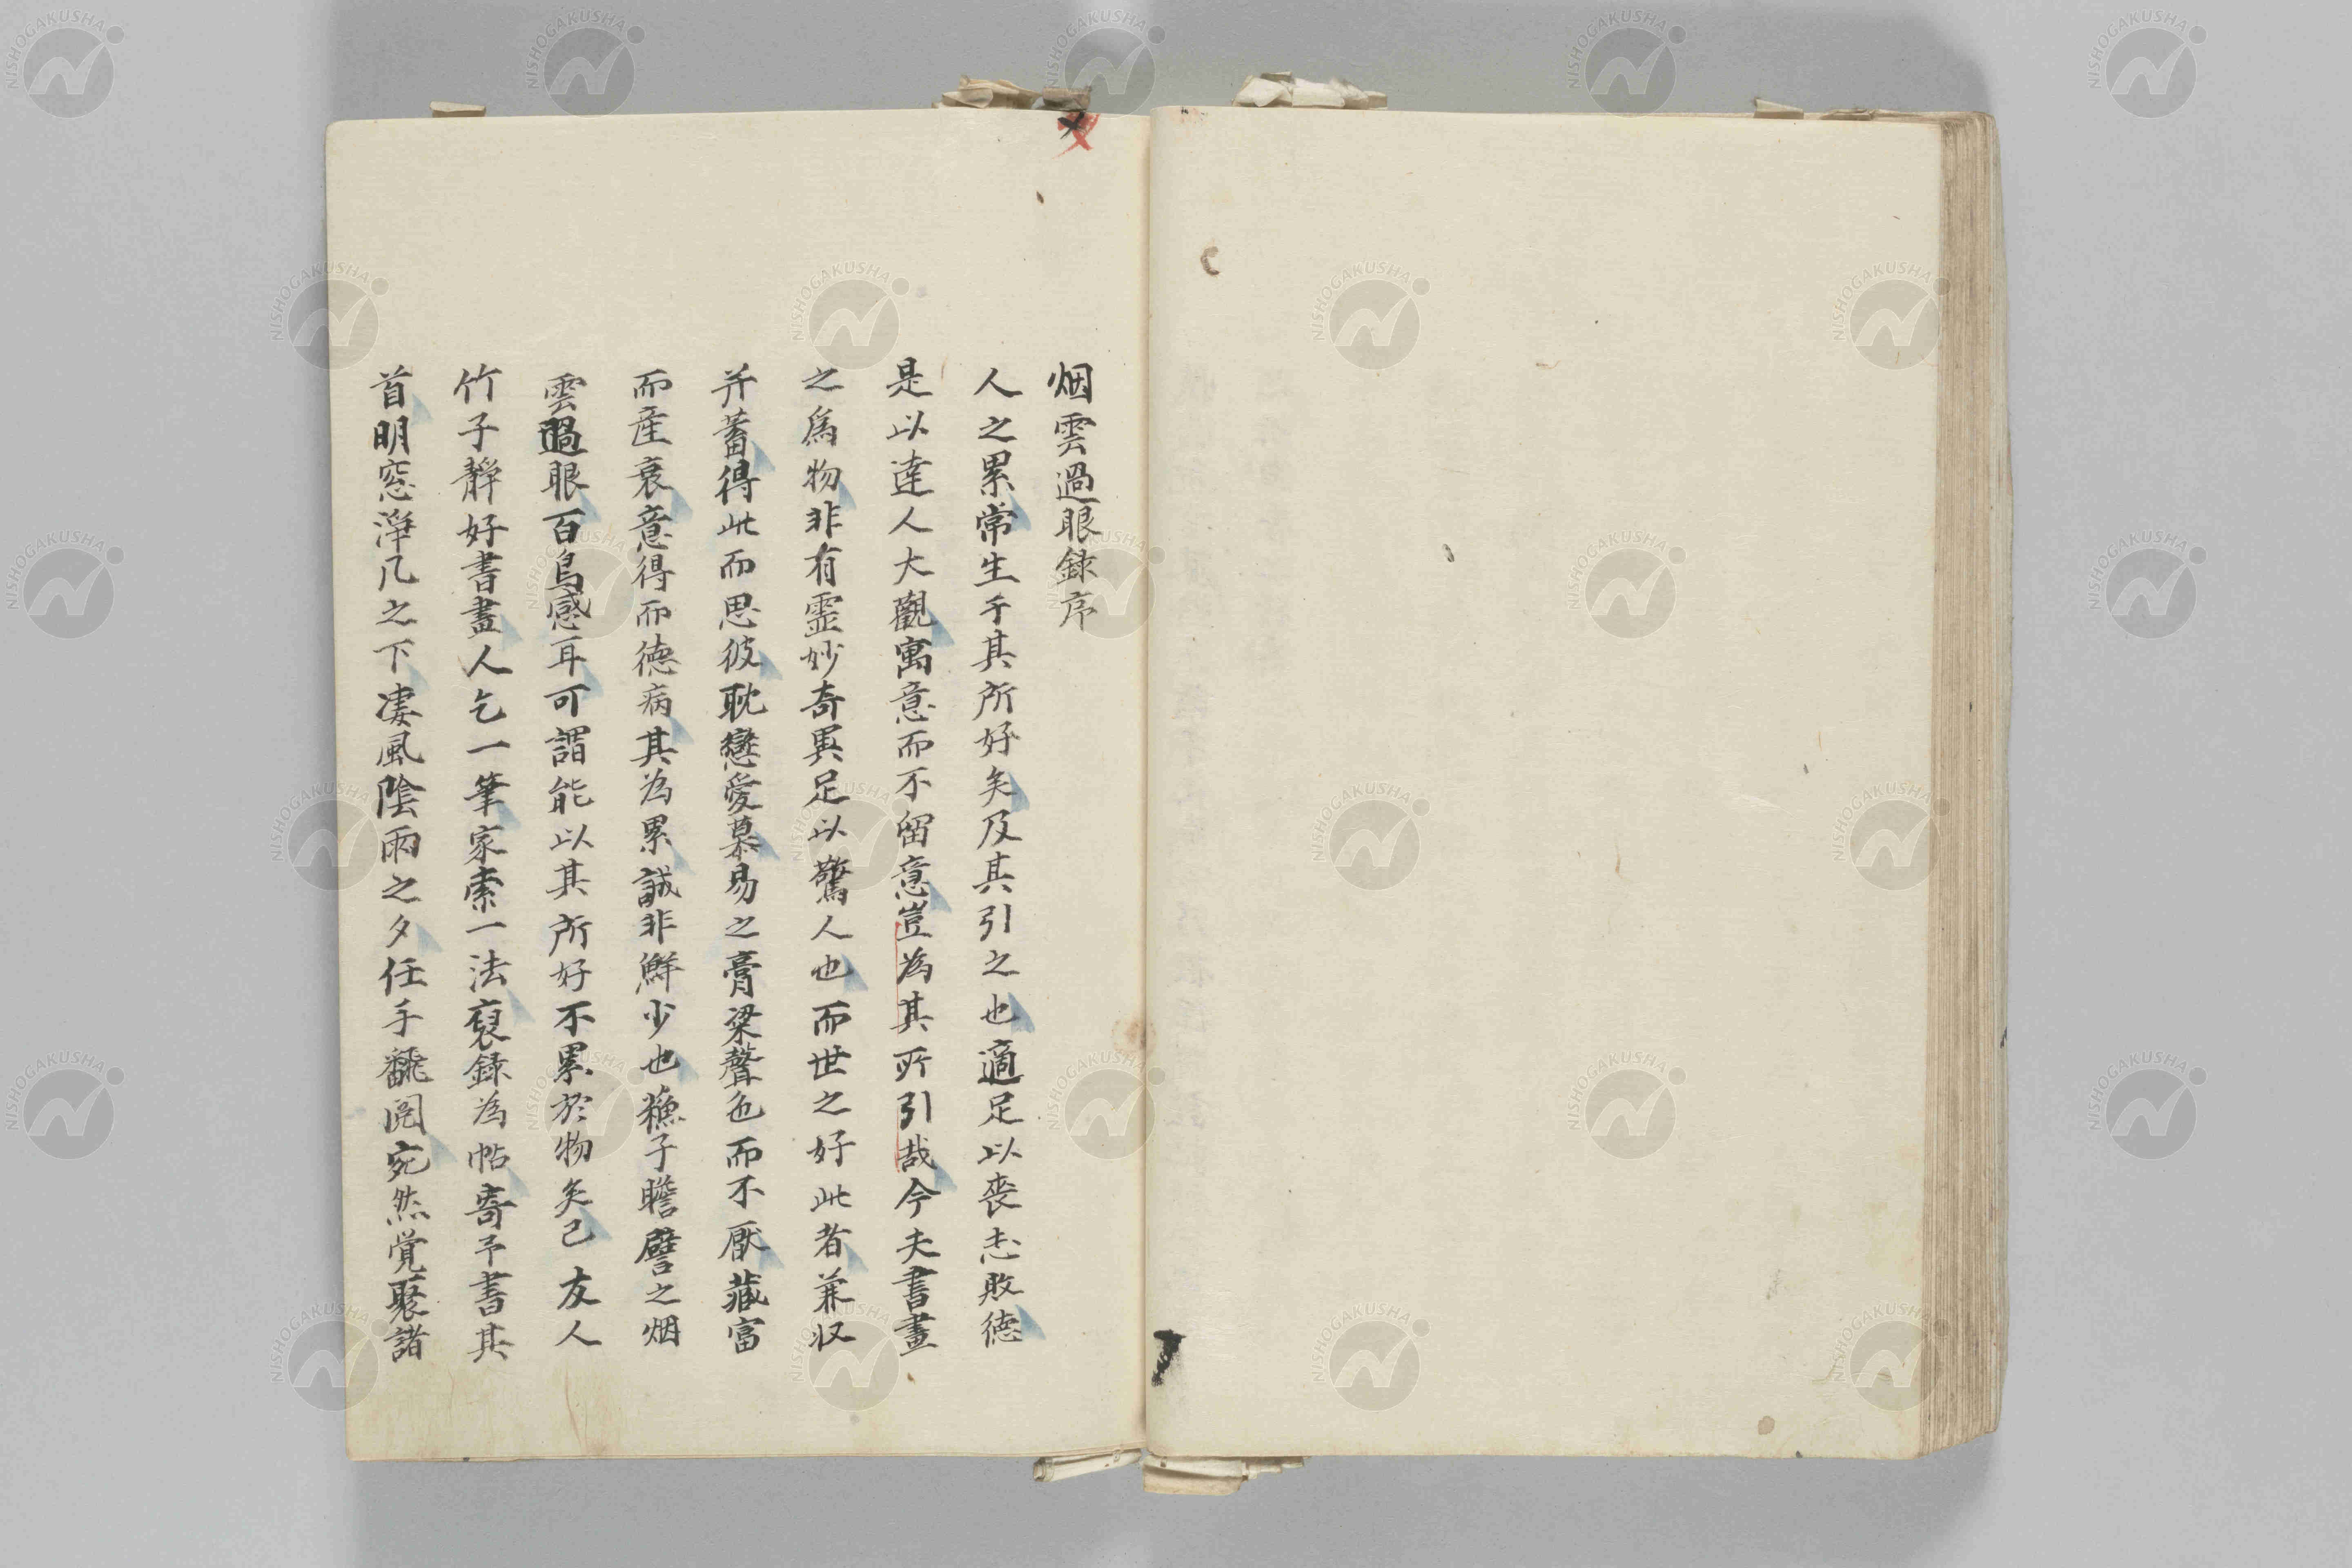 烟雲過眼錄序
人之累常生于其所好矣及其引之也適足以喪志敗德
是以達人大觀寓意而不留意豈為其所引哉今夫書畫
之爲物非有霊妙奇異足以驚人也而世之好此者兼収
并蓄得此而思彼耽戀愛慕易之膏粱聲色而不厭蔵富
而産衰意得而徳病其為累誠非鮮少也蘓子瞻譬之烟
雲過眼百鳥感耳可謂能以其所好不累於物矣己友人
竹子靜好書畫人乞一筆家索一法裒録為帖寄予書其
首明窓淨几之下凄風陰雨之夕任手飜閲宛然覚聚諸
NISHOGAKUSHA